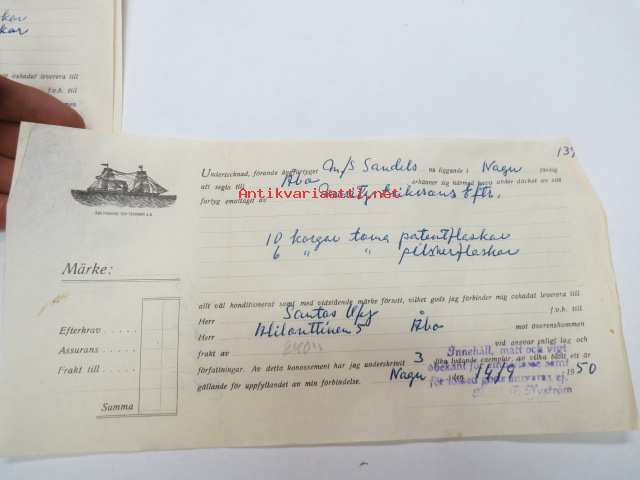 kar
kar
oskadat leverera till
f.v.h. till
139
UNDERTECKNAD, förande ångfartyget M/S Sandels nu liggande i Nagu färdig
att segla till Åbo erkänner sig närmed hava under däcket av sitt
fartyg emottagit av
Antikvariaatti.net
10 korgar toma patentflaskor
6 " " pilsnerflaskor
Märke:
allt väl konditionerat samt med vidstående märke försett, vilket gods jag förbinder mig oskadat leverera till
Herr Santos O/y f.v.h. till
Herr Åbo mot överenskommen
frakt av vid ansvar enligt lag och
författningar. Av detta konossement har jag underskrivit 3 lika lydande exemplar, av vilka blott ett är
gällande för uppfyllandet av min förbindelse. Nagu den 19/9 1950
Innehåll, mått och vigt
obekant
Nyström
Efterkrav
Assurans
Frakt till
Summa